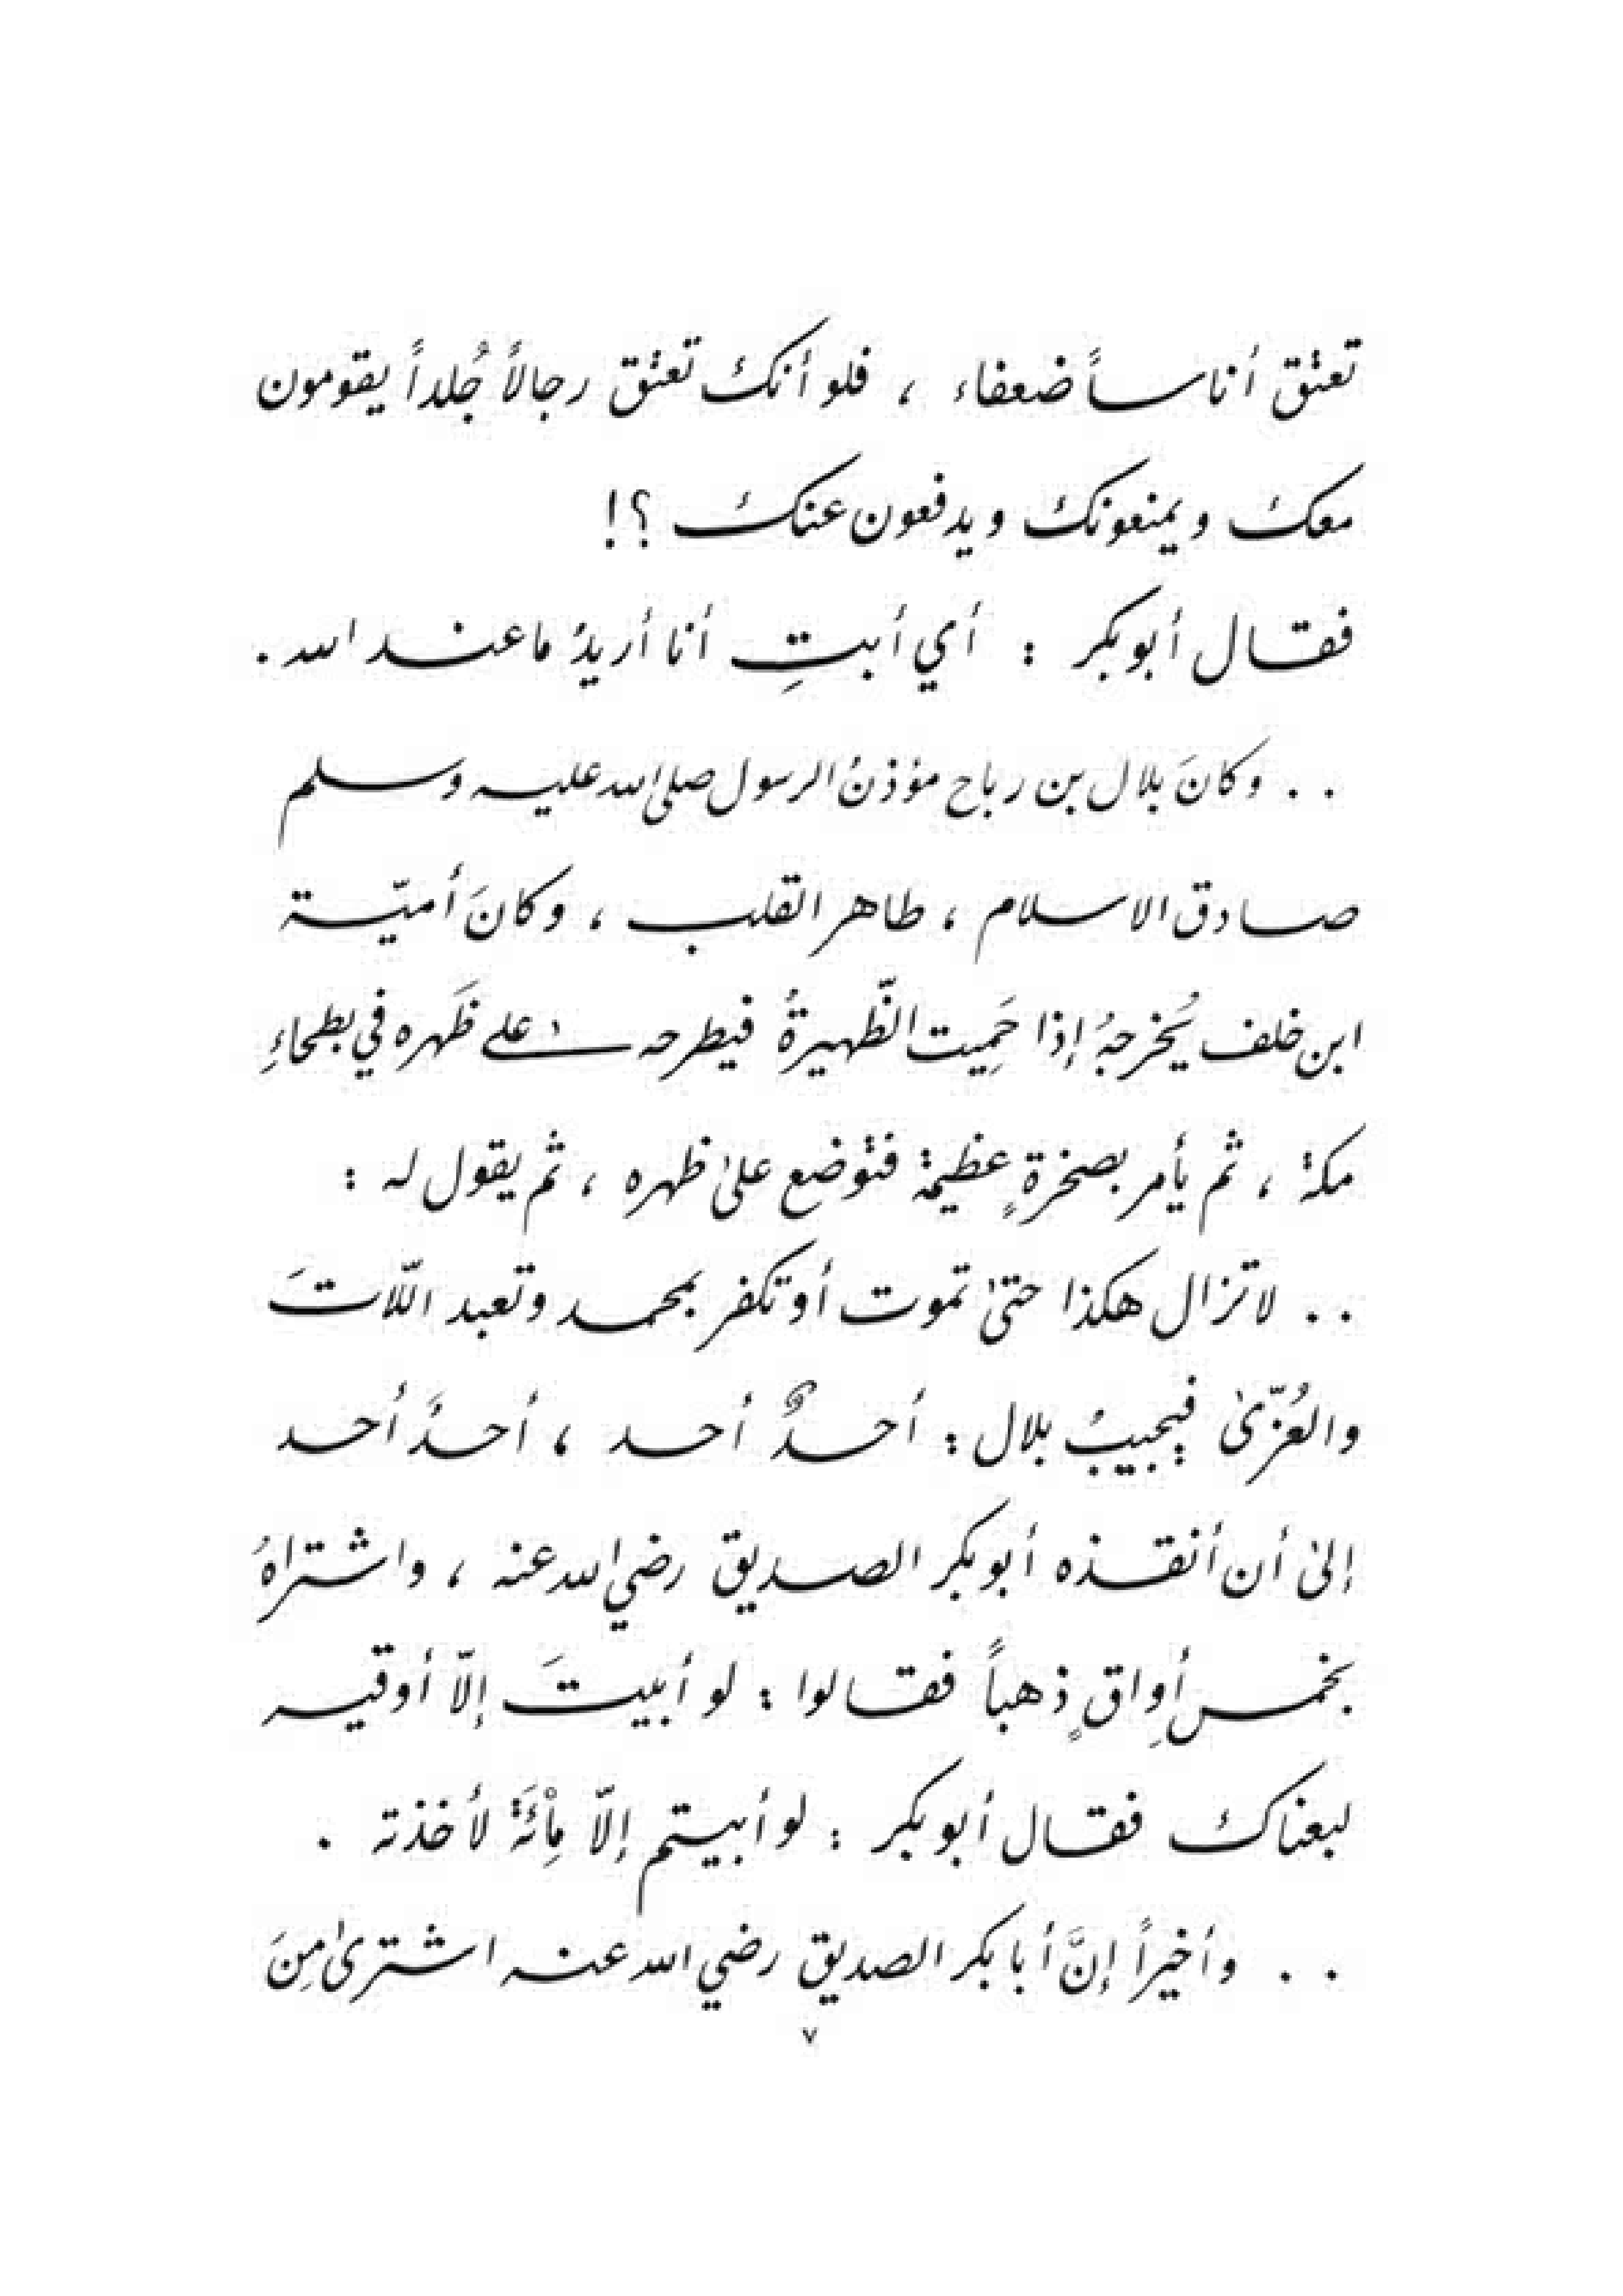 تعتق أناساً ضعفاء ، فلو أنك تعتق رجالاً جُلداً يقومون
معك ويمنعونك ويدفعون عنك ؟!
فقال أبو بكر : أي أبتِ أنا أريدُ ما عند الله .
.. وكانَ بلال بن رباح مؤذنُ الرسول صلى الله عليه وسلم
صادق الاسلام ، طاهر القلب ، وكانَ أميّة
ابن خلف يُخرجهُ إذا حَمِيت الظّهيرةُ فيطرحه على ظَهره في بطحاءِ
مكة ، ثم يأمر بصخرةٍ عظيمة فتوضع علىٰ ظهره ، ثم يقول له :
.. لا تزال هكذا حتىٰ تموت أو تكفر بمحمد وتعبد اللّاتَ
والعُزّىٰ فيجيبُ بلال : أحدٌ أحد ، أحدٌ أحد
إلىٰ أن أنقذه أبو بكر الصديق رضي الله عنه ، واشتراهُ
بخمس أواقٍ ذهباً فقالوا : لو أبيتَ إلّا أوقيه
لبعناك فقال أبو بكر : لو أبيتم إلّا مِاْئَةً لأخذته .
.. وأخيراً إنَّ أبا بكر الصديق رضي الله عنه اشترىٰ مِنَ
٧